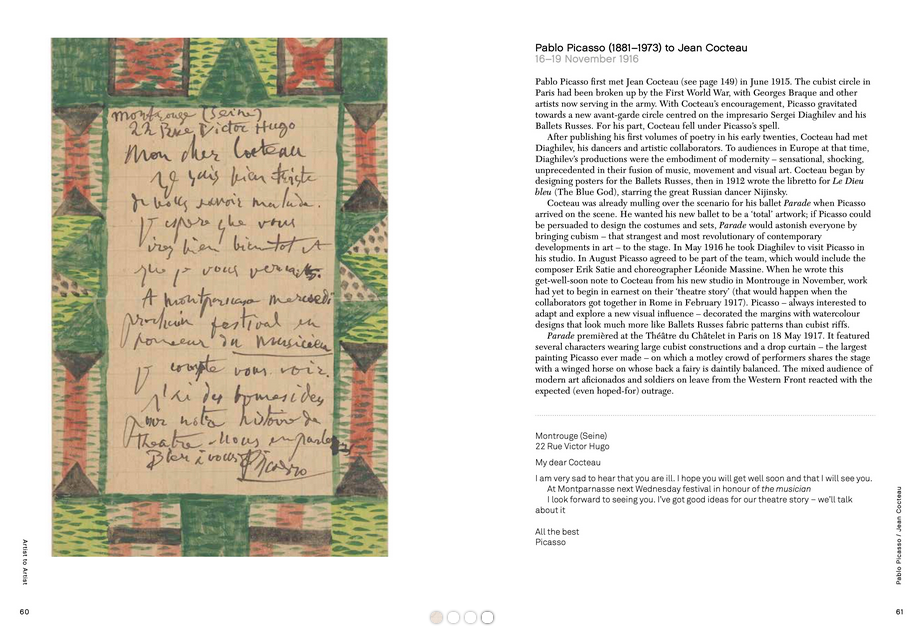 montrouge (Seine)
22 Rue Victor Hugo
Mon cher Cocteau
Je suis bien triste
de vous savoir malade.
J'espere que vous
irez bien bientot et
que je vous verrais.
A Montparnasse mercredi
prochain festival en
honneur du musicien
Je compte vous voir.
J'ai des bonnes idees
pour notre histoire de
theatre. Nous en parlerons
Bien à vous Picasso
Artist to Artist
60
Pablo Picasso (1881–1973) to Jean Cocteau
16–19 November 1916
Pablo Picasso first met Jean Cocteau (see page 149) in June 1915. The cubist circle in
Paris had been broken up by the First World War, with Georges Braque and other
artists now serving in the army. With Cocteau's encouragement, Picasso gravitated
towards a new avant-garde circle centred on the impresario Sergei Diaghilev and his
Ballets Russes. For his part, Cocteau fell under Picasso's spell.
After publishing his first volumes of poetry in his early twenties, Cocteau had met
Diaghilev, his dancers and artistic collaborators. To audiences in Europe at that time,
Diaghilev's productions were the embodiment of modernity – sensational, shocking,
unprecedented in their fusion of music, movement and visual art. Cocteau began by
designing posters for the Ballets Russes, then in 1912 wrote the libretto for Le Dieu
bleu (The Blue God), starring the great Russian dancer Nijinsky.
Cocteau was already mulling over the scenario for his ballet Parade when Picasso
arrived on the scene. He wanted his new ballet to be a 'total' artwork; if Picasso could
be persuaded to design the costumes and sets, Parade would astonish everyone by
bringing cubism – that strangest and most revolutionary of contemporary
developments in art – to the stage. In May 1916 he took Diaghilev to visit Picasso in
his studio. In August Picasso agreed to be part of the team, which would include the
composer Erik Satie and choreographer Léonide Massine. When he wrote this
get-well-soon note to Cocteau from his new studio in Montrouge in November, work
had yet to begin in earnest on their 'theatre story' (that would happen when the
collaborators got together in Rome in February 1917). Picasso – always interested to
adapt and explore a new visual influence – decorated the margins with watercolour
designs that look much more like Ballets Russes fabric patterns than cubist riffs.
Parade premièred at the Théâtre du Châtelet in Paris on 18 May 1917. It featured
several characters wearing large cubist constructions and a drop curtain – the largest
painting Picasso ever made – on which a motley crowd of performers shares the stage
with a winged horse on whose back a fairy is daintily balanced. The mixed audience of
modern art aficionados and soldiers on leave from the Western Front reacted with the
expected (even hoped-for) outrage.
Montrouge (Seine)
22 Rue Victor Hugo
My dear Cocteau
I am very sad to hear that you are ill. I hope you will get well soon and that I will see you.
At Montparnasse next Wednesday festival in honour of the musician
I look forward to seeing you. I've got good ideas for our theatre story – we'll talk
about it
All the best
Picasso
Pablo Picasso / Jean Cocteau
61